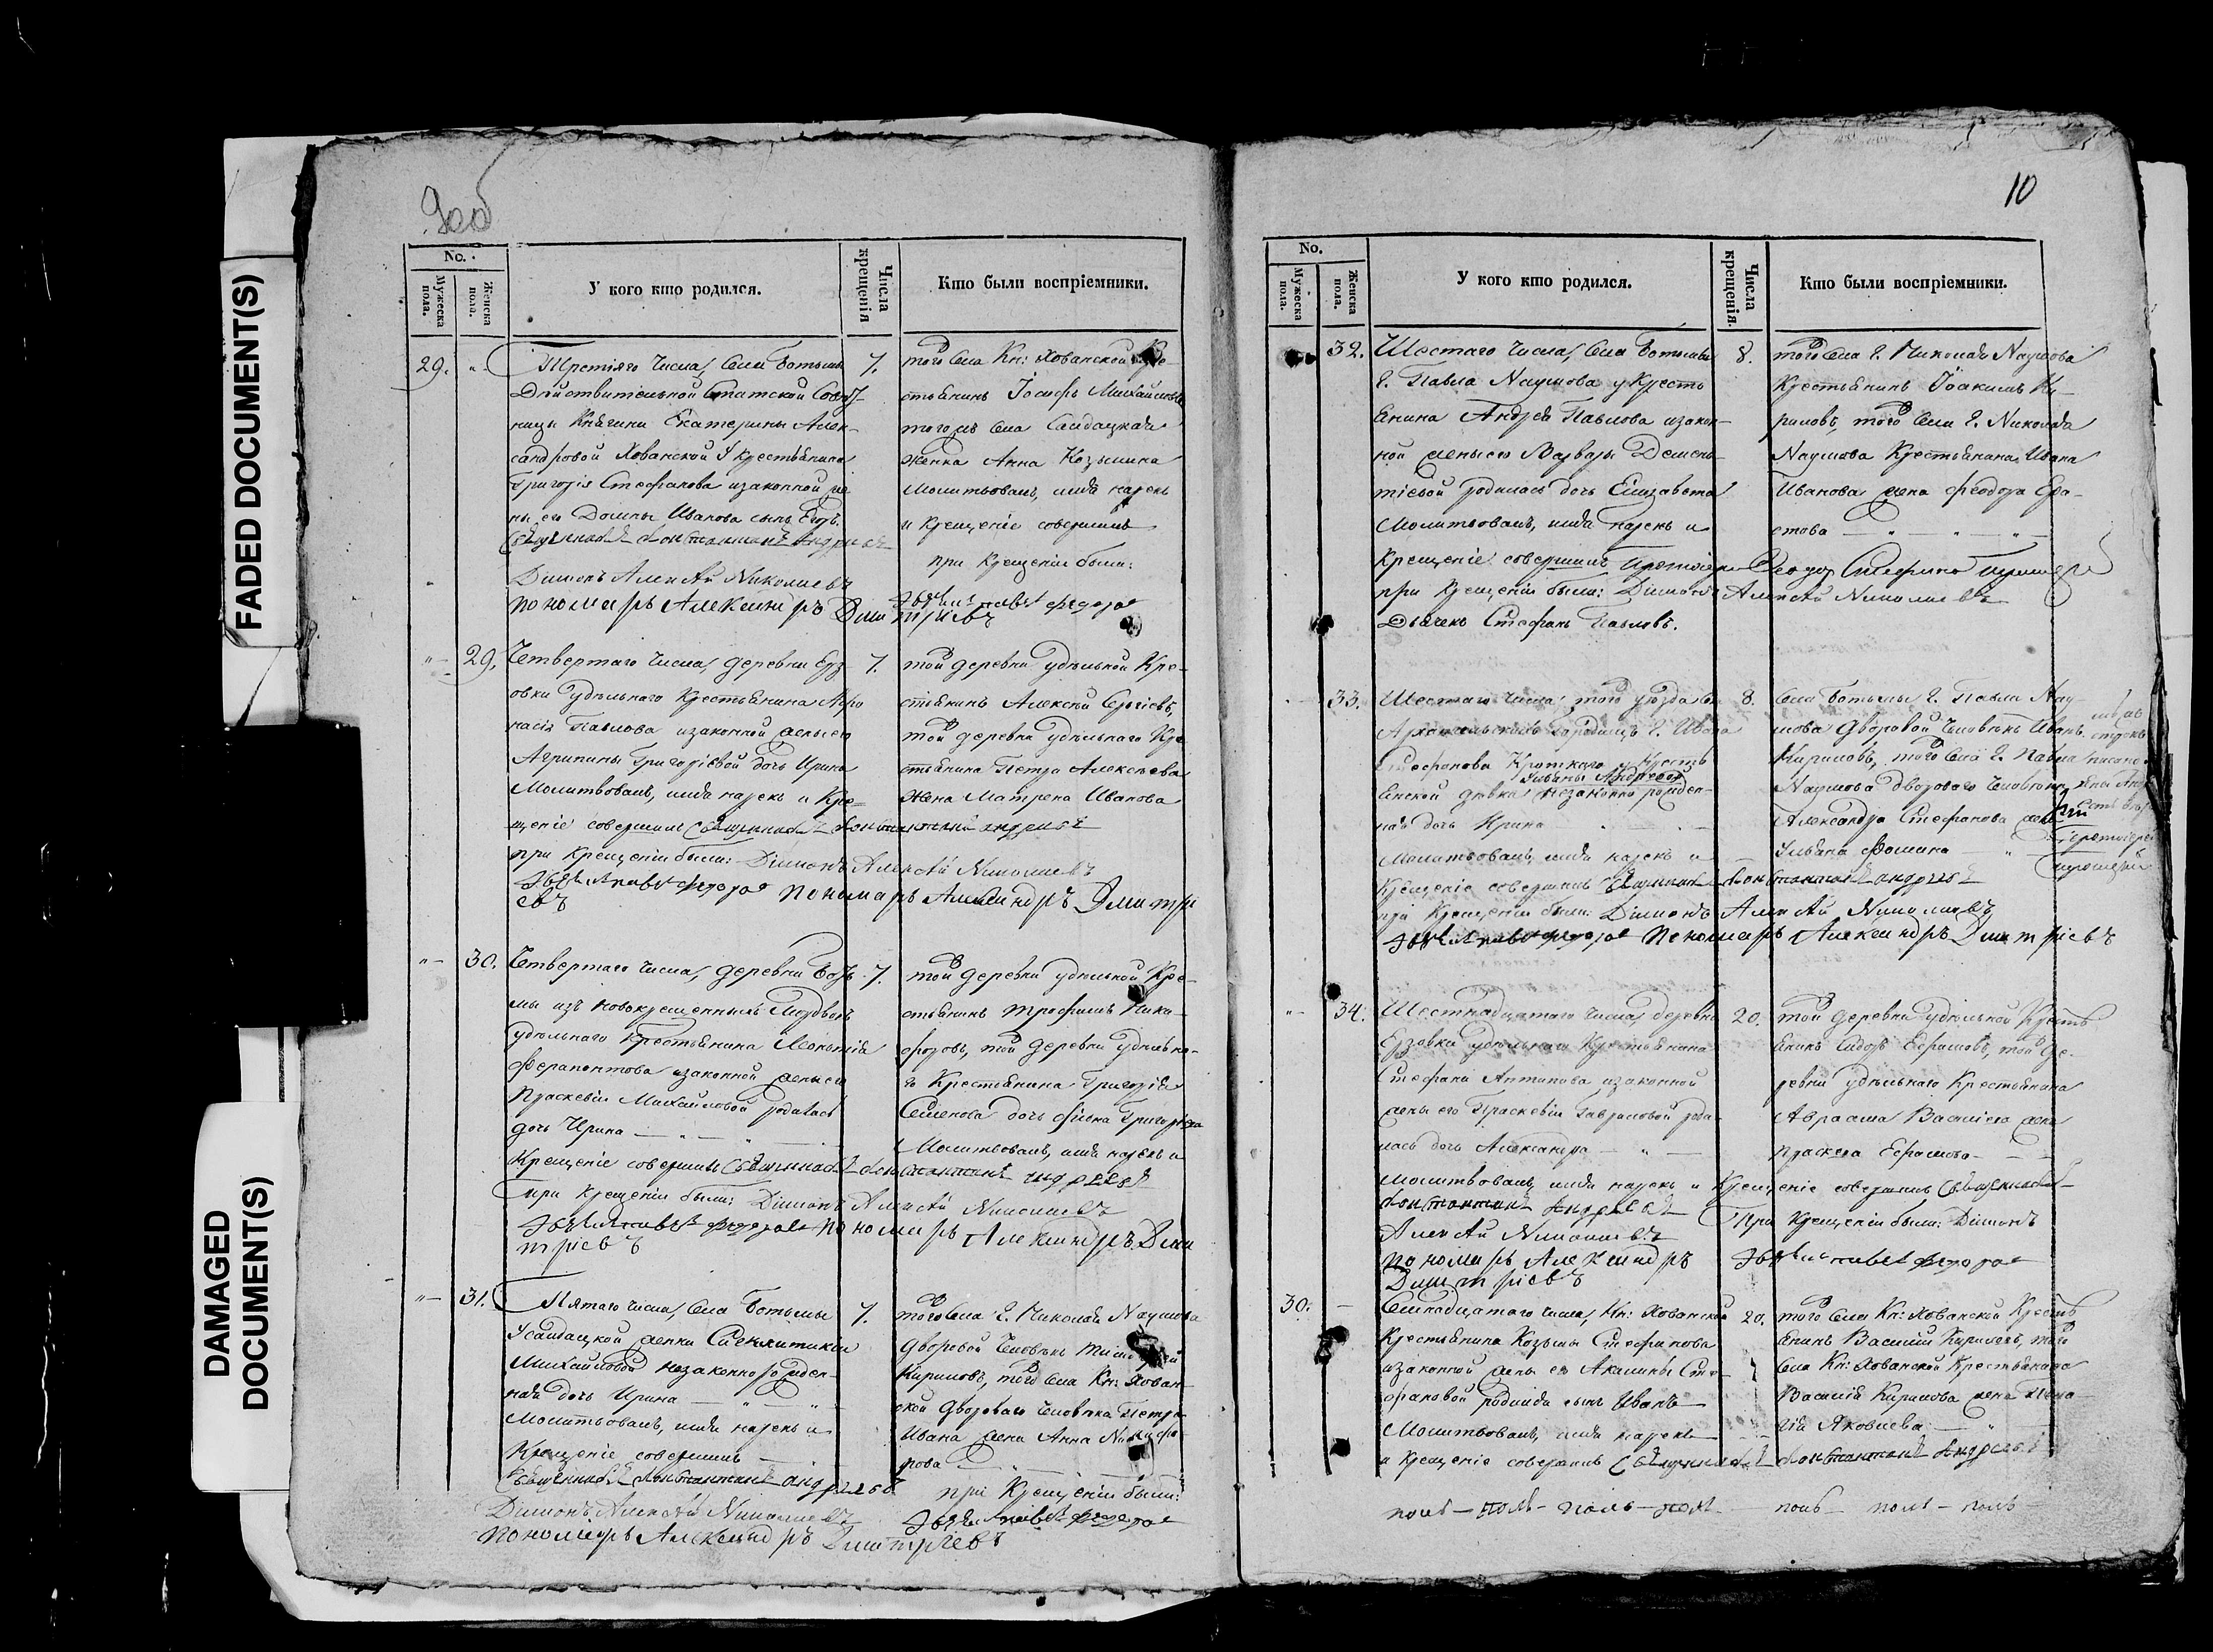 FADED DOCUMENT(S)
DAMAGED
DOCUMENT(S)
9 об
No.
Мужеска пола.
Женска пола.
У кого кто родился.
Числа крещенія
Кто были воспріемники.
29. "
Третіяго числа, села Ботьмы
Действительной Статской Совет-
ницы Княгини Екатерины Алек-
сандровой Хованской у крестьянина
Григорія Стефанова изаконной же
ны его Домны Ивановa сынъ
Священникъ Константинъ Андреевъ
Діаконъ Алексѣй Николаевъ
пономарь Александръ Дмитріевъ
7.
того села Кн: Хованской Кре-
стьянинъ Іосифъ Михайловъ
того жъ села Салдацкая
женка Анна Козьмина
Молитвовалъ, имя нарекъ
и крещеніе совершилъ
при Крещеніи были:
29.
Четвертаго числа, деревни Ерз
овки удѣльнаго Крестьянина Афо
насія Павлова изаконной жены его
Агрипины Григоріевой дочь Ирина
Молитвовалъ, имя нарекъ и Кре-
щеніе совершилъ Священникъ Константинъ Андреевъ
при Крещеніи были: Діаконъ Алексѣй Николаевъ
пономарь Александръ Дмитрі
евъ
7.
той деревни удѣльной Кре-
стьянинъ Алексѣй Сергіевъ,
той деревни удѣльнаго Кре
стьянина Петра Алексѣева
жена Матрена Иванова
30.
Четвертаго числа, деревни
мы изъ новокрещенныхъ Мордвы
удѣльнаго Крестьянина Леонтія
Ферапонтова изаконной жены его
Праскевіи Михайловой родилась
дочь Ирина
Крещеніе совершилъ Священникъ Константинъ Андреевъ
при Крещеніи были: Діаконъ Алексѣй Николаевъ
пономарь Александръ Дми
тріевъ
7.
той деревни удѣльной Кре-
стьянинъ Трофимъ Ники-
форовъ, той деревни удѣльна-
го Крестьянина Григорія
Семенова дочь Григорьева
Молитвовалъ, имя нарекъ и
31.
Пятаго числа, села Ботьмы
У салдацкой женки
Михайловой незаконнорожден-
ная дочь Ирина
Молитвовалъ, имя нарекъ и
Крещеніе совершилъ
Священникъ Константинъ Андреевъ
Діаконъ Алексѣй Николаевъ
пономарь Александръ Дмитріевъ
7.
того села Г. Николая Наумова
дворовой человѣкъ
Кириловъ, того села Кн: Хован-
ской дворовaго человѣка Петра
Ивана жена Анна Никифо
рова
при Крещеніи были:
10
No.
Мужеска пола.
Женска пола.
У кого кто родился.
Числа крещенія.
Кто были воспріемники.
32.
Шестаго числа, села Ботьмы
Г. Павла Наумова у Кресть
янина Андрея Павлова изакон-
ной жены его Варвары Демен-
тіевой родилась дочь Елизавета
Молитвовалъ, имя нарекъ и
Крещеніе совершилъ Протоіерей Феодоръ
при Крещеніи были: Діаконъ Алексѣй Николаевъ
Дьячекъ Стефанъ Павловъ.
8.
того села Г. Николая Наумова
Крестьянинъ Іоакимъ Ки-
риловъ, того села Г. Николая
Наумова Крестьянина Ивана
Иванова жена Феодора Ера-
стова
33.
Шестаго числа, того уѣзда села
Архангельскихъ Городищъ Г. Ивана
Стефанова Кроткаго у Кресть
Ульяны Андреевой
янской дѣвки незаконно рожден-
ная дочь Ирина
Молитвовалъ, имя нарекъ и
Крещеніе совершилъ Священникъ Константинъ Андреевъ
при Крещеніи были: Діаконъ Алексѣй Николаевъ
пономарь Александръ Дмитріевъ
8.
села Ботьмы Г. Павла Нау-
мова дворовой человѣкъ Иванъ
Кириловъ, того села Г. Павла
Наумова дворового человѣка
Александра Стефанова жена
Ульяна Фомина
34.
Шестнадцатаго числа, деревни
Ерзовки удѣльнаго Крестьянина
Стефана Антипова изаконной
жены его Праскевіи Гавриловой роди-
лась дочь Александра
Молитвовалъ, имя нарекъ и Крещеніе совершилъ Священникъ
Константинъ Андреевъ При Крещеніи были: Діаконъ
Алексѣй Николаевъ
пономарь Александръ
Дмитріевъ
20.
той деревни удѣльной Кресть
янинъ Сидоръ Ефремовъ, той де-
ревни удѣльнаго Крестьянина
Авраама Васильева жена
Праскева Ефремова
30.
Семнадцатаго числа, Кн: Хованской
Крестьянина Козьмы Стефанова
изаконной жены его Акилины Сте-
фановой родился сынъ Иванъ
Молитвовалъ, имя нарекъ
и Крещеніе совершилъ Священникъ Константинъ Андреевъ
20.
того села Кн: Хованской Кресть
янинъ Василій Кириловъ, того
села Кн: Хованской Крестьянина
Василія Кирилова жена Пела-
гія Яковлева